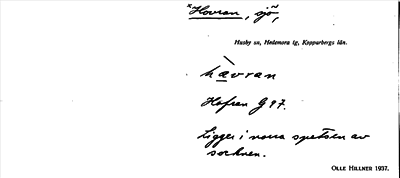 *Hovran, sjö,
Husby sn, Hedemora tg, Kopparbergs län.
hævran
Hofren G 97.
Ligger i norra spetsen av
socknen.
OLLE HILLNER 1937.